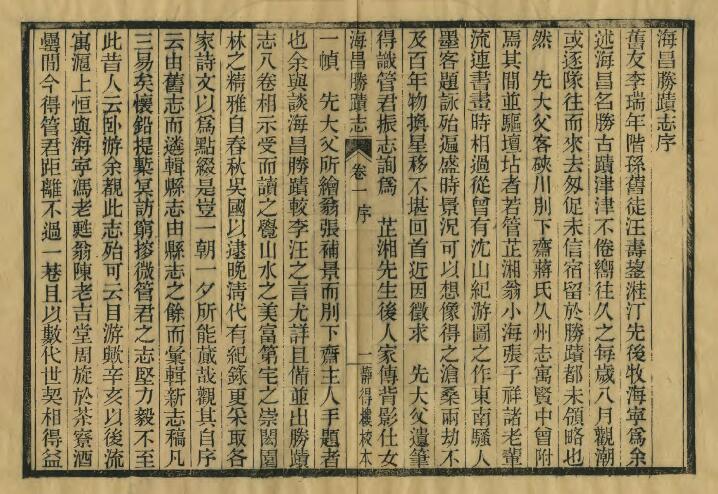 海昌勝蹟志序
舊友李瑞年階孫舊徒汪壽鋆溎汀先後牧海寧爲余
述海昌名勝古蹟津津不倦嚮往久之每歲八月觀潮
或逐隊往而來去匆促未信宿留於勝蹟都未領略也
然　先大父客硤川別下齋蔣氏久州志寓賢中曾附
焉其間並驅壇坫者若管芷湘翁小海張子祥諸老輩
流連書畫時相過從曾有沈山紀游圖之作東南騷人
墨客題詠殆遍盛時景況可以想像得之滄桑兩劫不
及百年物換星移不堪回首近因徵求　先大父遺筆
得識管君振志詢爲　芷湘先生後人家傳背影仕女
海昌勝蹟志　卷一　序　一　靜得樓校本
一幀　先大父所繪翁張補景而別下齋主人手題者
也余與談海昌勝蹟較李汪之言尤詳且備並出勝蹟
志八卷相示受而讀之覺山水之美富第宅之崇閎園
林之精雅自春秋吳國以逮晚淸代有紀錄更采取各
家詩文以爲點綴是豈一朝一夕所能蕆哉觀其自序
云由舊志而遴輯縣志由縣志之餘而彙輯新志稿凡
三易矣懷鉛提槧冥訪窮搜微管君之志堅力毅不至
此昔人云卧游余覩此志殆可云目游歟辛亥以後流
寓滬上恒與海寧馮老甦翁陳老吉堂周旋於茶寮酒
罍間今得管君距離不過一巷且以數代世契相得益